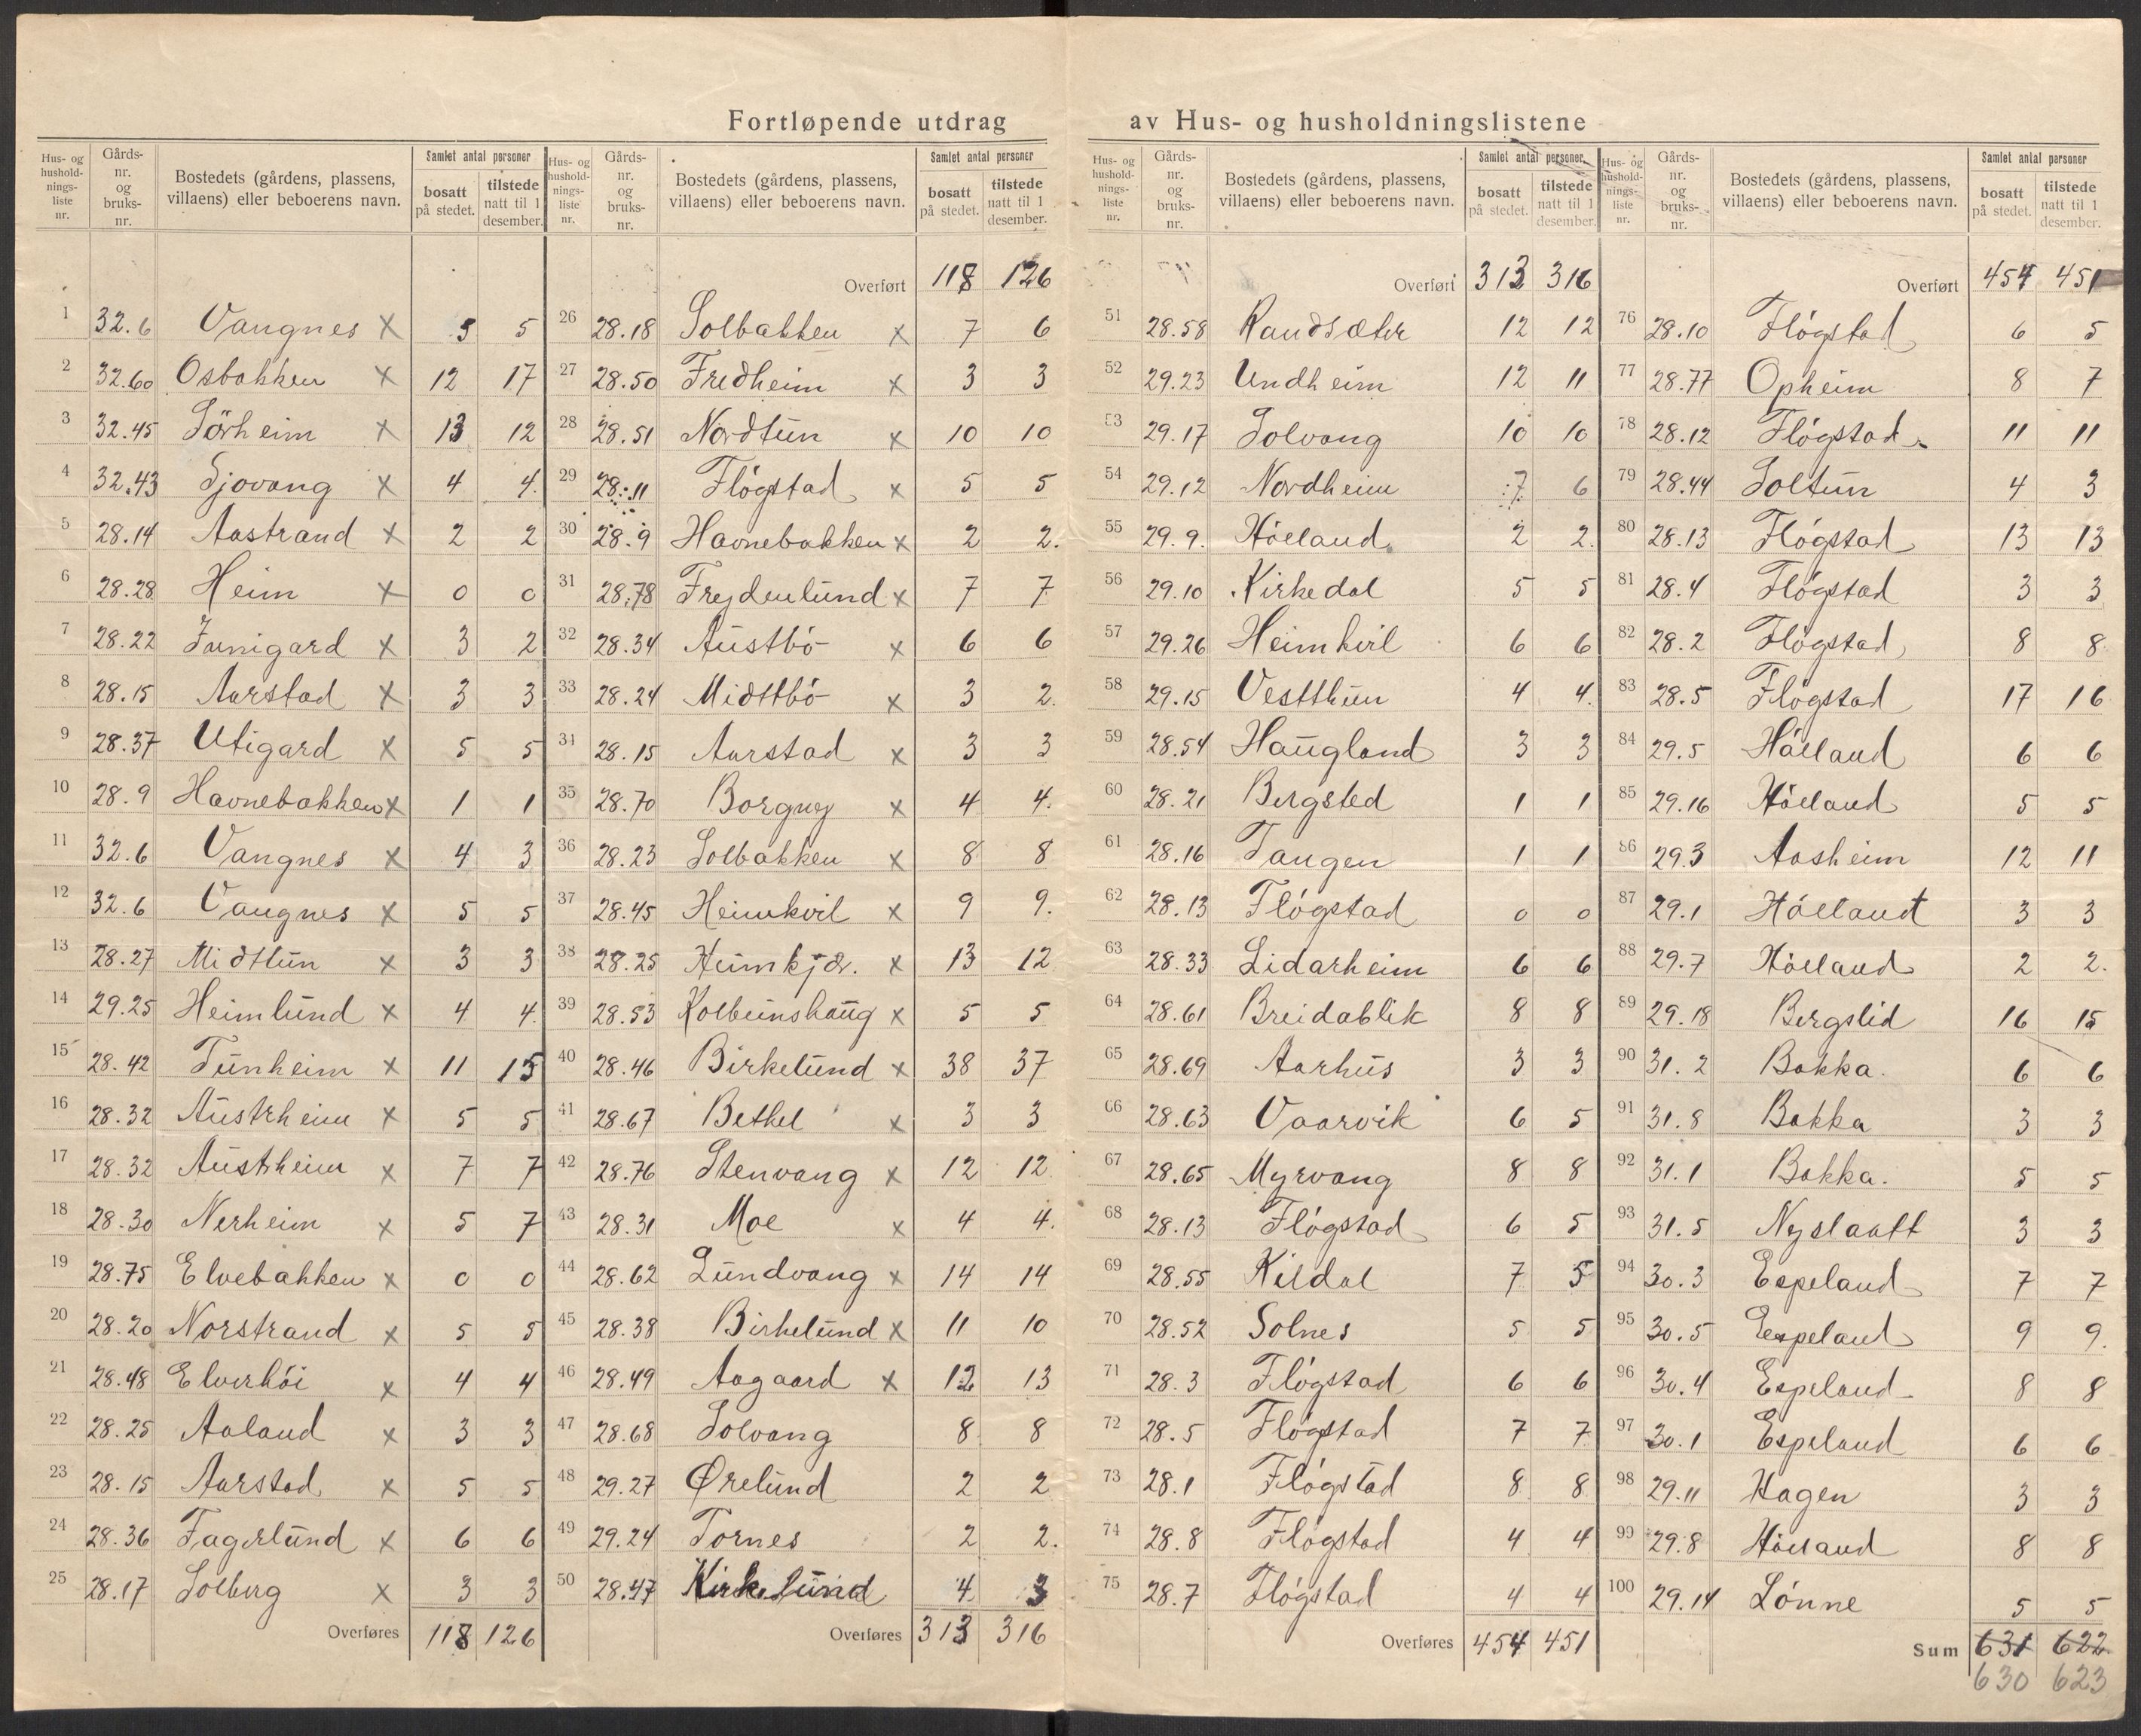 Fortløpende utdrag av Hus- og husholdningslistene
Hus- og hushold- nings- liste nr. Gårds- nr. og bruks- nr. Bostedets (gårdens, plassens, villaens) eller beboerens navn. Samlet antal personer bosatt på stedet. tilstede natt til 1 desember.
1 32.6 Vangnes x 5 5
2 32.60 Osbakken x 12 17
3 32.45 Sörheim x 13 12
4 32.43 Sjovang x 4 4.
5 28.14 Aastrand x 2 2
6 28.28 Heim x 0 0
7 28.22 Innigard x 3 2
8 28.15 Aarstad x 3 3
9 28.37 Utigard x 5 5
10 28.9 Havnebakken x 1 1
11 32.6 Vangnes x 4 3
12 32.6 Vangnes x 5 5
13 28.27 Midttun x 3 3
14 29.25 Heimlund x 4 4
15 28.42 Tunheim x 11 15
16 28.32 Austrheim x 5 5
17 28.32 Austrheim x 7 7
18 28.30 Nerheim x 5 7
19 28.75 Elvebakken x 0 0
20 28.20 Norstrand x 5 5
21 28.48 Elverhöi x 4 4
22 28.25 Aaland x 3 3
23 28.15 Aarstad x 5 5
24 28.36 Fagerlund x 6 6
25 28.17 Solberg x 3 3
Overføres 118 126
Hus- og hushold- nings- liste nr. Gårds- nr. og bruks- nr. Bostedets (gårdens, plassens, villaens) eller beboerens navn. Samlet antal personer bosatt på stedet. tilstede natt til 1 desember.
Overført 118 126
26 28.18 Solbakken x 7 6
27 28.50 Fredheim x 3 3
28 28.51 Nordtun x 10 10
29 28.11 Flögstad x 5 5
30 28.9 Havnebakken x 2 2.
31 28.78 Frejdenlund x 7 7
32 28.34 Austbö x 6 6
33 28.24 Midttbö x 3 2.
34 28.15 Aarstad x 3 3
35 28.70 Borgny x 4 4.
36 28.23 Solbakken x 8 8
37 28.45 Heimkvil x 9 9.
38 28.25 Heimkjæ. x 13 12
39 28.53 Kolbeinshaug x 5 5
40 28.46 Birkelund x 38 37
41 28.67 Bethel x 3 3
42 28.76 Stenvang x 12 12
43 28.31 Moe x 4 4.
44 28.62 Lundvang x 14 14
45 28.38 Birkelund x 11 10
46 28.49 Aagaard x 12 13
47 28.68 Solvang 8 8
48 29.27 Ørelund 2 2
49 29.24 Tornes 2 2.
50 28.47 Kirkelund 4 3
Overføres 313 316
Hus- og hushold- nings- liste nr. Gårds- nr. og bruks- nr. Bostedets (gårdens, plassens, villaens) eller beboerens navn. Samlet antal personer bosatt på stedet. tilstede natt til 1 desember.
Overført 313 316
51 28.58 Randsæter 12 12
52 29.23 Undheim 12 11
53 29.17 Solvang 10 10
54 29.12 Nordheim 7 6
55 29.9. Höeland 2 2.
56 29.10 Kirkedal 5 5
57 29.26 Heimkvil 6 6
58 29.15 Vestthun 4 4.
59 28.54 Haugland 3 3
60 28.21 Bergsted 1 1
61 28.16 Tangen 1 1
62 28.13 Flögstad 0 0
63 28.33 Lidarheim 6 6
64 28.61 Breidablik 8 8
65 28.69 Aarhus 3 3
66 28.63 Vaarvik 6 5
67 28.65 Myrvang 8 8
68 28.13 Flögstad 6 5
69 28.55 Kildal 7 5
70 28.52 Solnes 5 5
71 28.3 Flögstad 6 6
72 28.5 Flögstad 7 7
73 28.1 Flögstad 8 8
74 28.8 Flögstad 4 4
75 28.7 Flögstad 4 4
Overføres 454 451
Hus- og hushold- nings- liste nr. Gårds- nr. og bruks- nr. Bostedets (gårdens, plassens, villaens) eller beboerens navn. Samlet antal personer bosatt på stedet. tilstede natt til 1 desember.
Overført 454 451
76 28.10 Flögstad 6 5
77 28.77 Opheim 8 7
78 28.12 Flögstad 11 11
79 28.44 Soltun 4 3
80 28.13 Flögstad 13 13
81 28.4 Flögstad 3 3
82 28.2 Flögstad 8 8
83 28.5 Flögstad 17 16
84 29.5 Höeland 6 6
85 29.16 Höeland 5 5
86 29.3 Aasheim 12 11
87 29.1 Höelandt 3 3
88 29.7 Höeland 2 2.
89 29.18 Bergslid 16 15
90 31.2 Bakka. 6 6
91 31.8 Bakka 3 3
92 31.1 Bakka. 5 5
93 31.5 Nyslaatt 3 3
94 30.3 Espeland 7 7
95 30.5 Espeland 9 9.
96 30.4 Espeland 8 8
97 30.1 Espeland 6 6
98 29.11 Hagen 3 3
99 29.8 Höeland 8 8
100 29.14 Lönne 5 5
Sum 631 622
630 623